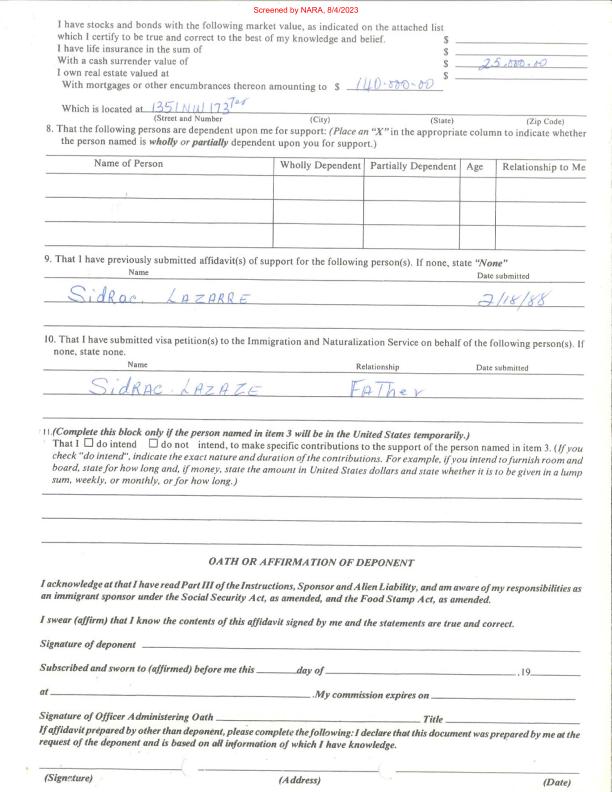 Screened by NARA, 8/4/2023
I have stocks and bonds with the following market value, as indicated on the attached list
which I certify to be true and correct to the best of my knowledge and belief. $
I have life insurance in the sum of $
With a cash surrender value of $ 25.000.00
I own real estate valued at $
With mortgages or other encumbrances thereon amounting to $ 140.000.00
Which is located at 1351 NW 173 Ter
(Street and Number (City) (State) (Zip Code)
8. That the following persons are dependent upon me for support: (Place an "X" in the appropriate column to indicate whether
the person named is wholly or partially dependent upon you for support.)
Name of Person Wholly Dependent Partially Dependent Age Relationship to Me
9. That I have previously submitted affidavit(s) of support for the following person(s). If none, state "None"
Name Date submitted
SidRac. LAZARRE 2/18/88
10. That I have submitted visa petition(s) to the Immigration and Naturalization Service on behalf of the following person(s). If
none, state none.
Name Relationship Date submitted
SidRAC. LAZAZE FATher
11.(Complete this block only if the person named in item 3 will be in the United States temporarily.)
That I ☐ do intend ☐ do not intend, to make specific contributions to the support of the person named in item 3. (If you
check "do intend", indicate the exact nature and duration of the contributions. For example, if you intend to furnish room and
board, state for how long and, if money, state the amount in United States dollars and state whether it is to be given in a lump
sum, weekly, or monthly, or for how long.)
OATH OR AFFIRMATION OF DEPONENT
I acknowledge at that I have read Part III of the Instructions, Sponsor and Alien Liability, and am aware of my responsibilities as
an immigrant sponsor under the Social Security Act, as amended, and the Food Stamp Act, as amended.
I swear (affirm) that I know the contents of this affidavit signed by me and the statements are true and correct.
Signature of deponent
Subscribed and sworn to (affirmed) before me this day of ,19
at .My commission expires on
Signature of Officer Administering Oath Title
If affidavit prepared by other than deponent, please complete the following: I declare that this document was prepared by me at the
request of the deponent and is based on all information of which I have knowledge.
(Signature) (Address) (Date)